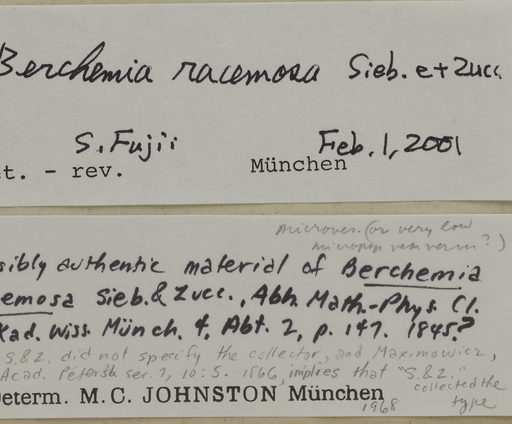 Berchemia racemosa Sieb. et Zucc.
S. Fujii Feb. 1, 2001
et. - rev. München
microves. (or very low
sibly authentic material of Berchemia
emosa Sieb. & Zucc., Abh. Math.-Phys. Cl.
kad. Wiss. Münch. 4, Abt. 2, p. 147. 1845?
S.&Z. did not specify the collector, and Maximowicz,
Acad. Pétersb. ser. 7, 10: 5. 1866, implies that "S.&Z."
collected the
type
eterm. M.C. JOHNSTON München
1968